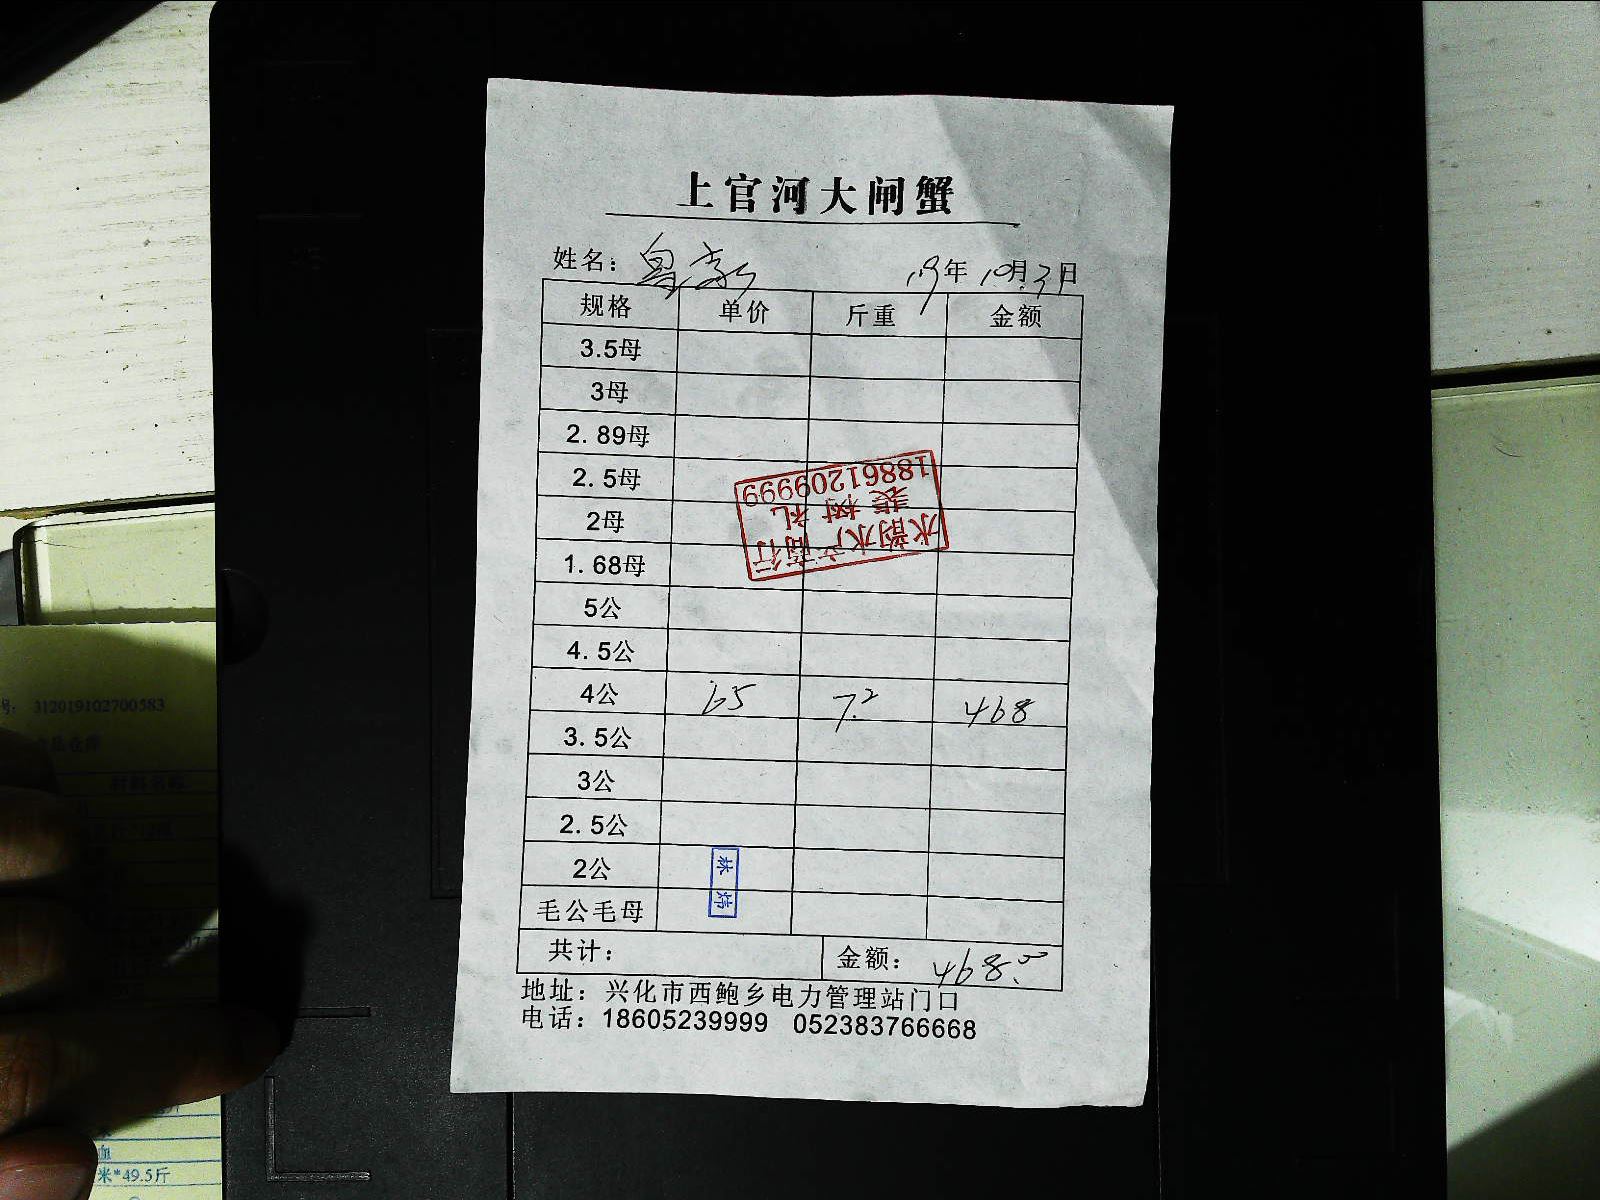 上官河大闸蟹
姓名： 19年10月31日
规格 单价 斤重 金额
3.5母
3母
2.89母
2.5母
2母
1.68母
5公
4.5公
4公 65 7.2 468
3.5公
3公
2.5公
2公
毛公毛母
共计： 金额：468.00
地址：兴化市西鲍乡电力管理站门口
电话：18605239999 052383766668
水韵水产商行
裴树礼
18861209999
林
312019102700583
米*49.5斤